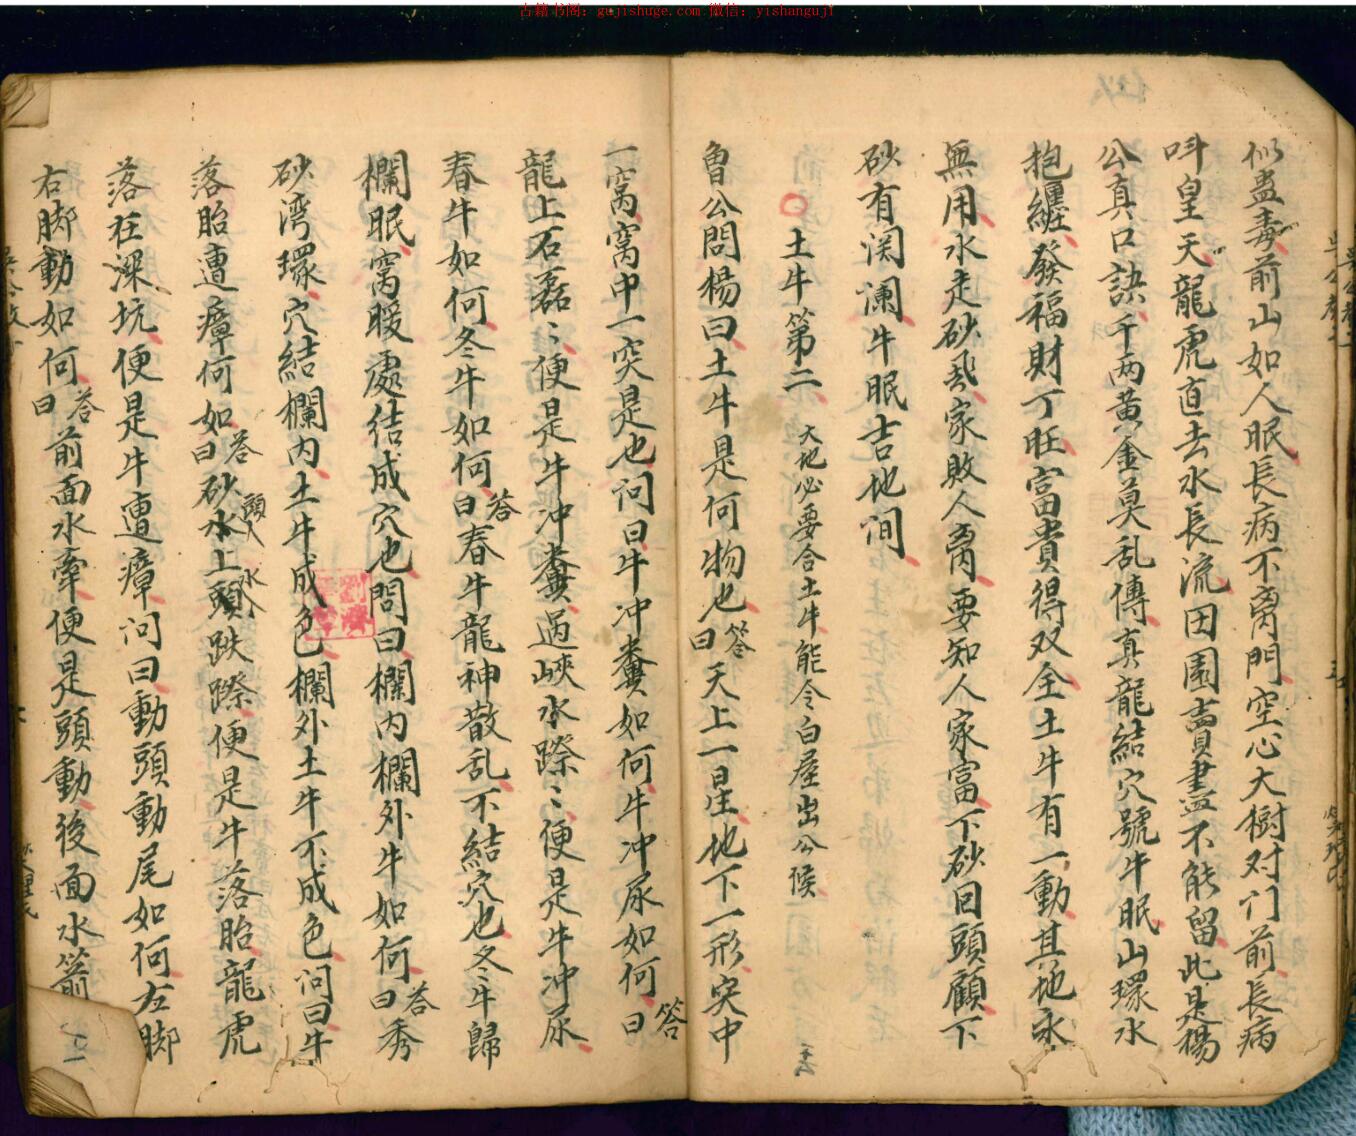 古籍书阁：gujishuge.com 微信：yishanguji
似蛊毒前山如人眠長病不离門空心大樹对门前長病
呌皇天龍虎直去水長流田園賣盡不能留此是楊
公真口訣千两黄金莫乱傳真龍結穴號牛眠山環水
抱纏發福財丁旺富貴得双全土牛有一動其地永
無用水走砂飛家敗人离要知人家富下砂回頭顧下
砂有関澜牛眠吉地间
○土牛第二 大地必要合土牛能令白屋出公侯
魯公問楊曰土牛是何物也答曰天上一星地下一形突中
一窩窩中一突是也问曰牛冲糞如何牛冲尿如何答曰
龍上石磊〻便是牛冲糞過峽水際〻便是牛冲尿
春牛如何冬牛如何答曰春牛龍神散乱不結穴也冬牛歸
欄眠窩暖處结成穴也問曰欄内欄外牛如何答曰秀
砂湾環穴結欄内土牛成色欄外土牛不成色问曰牛
落胎遭瘴何如答曰砂水上頭跌際便是牛落胎龍虎
頭入水入
落在深坑便是牛遭瘴问曰動頭動尾如何左脚
右脚動如何答曰前面水牽便是頭動後面水箭